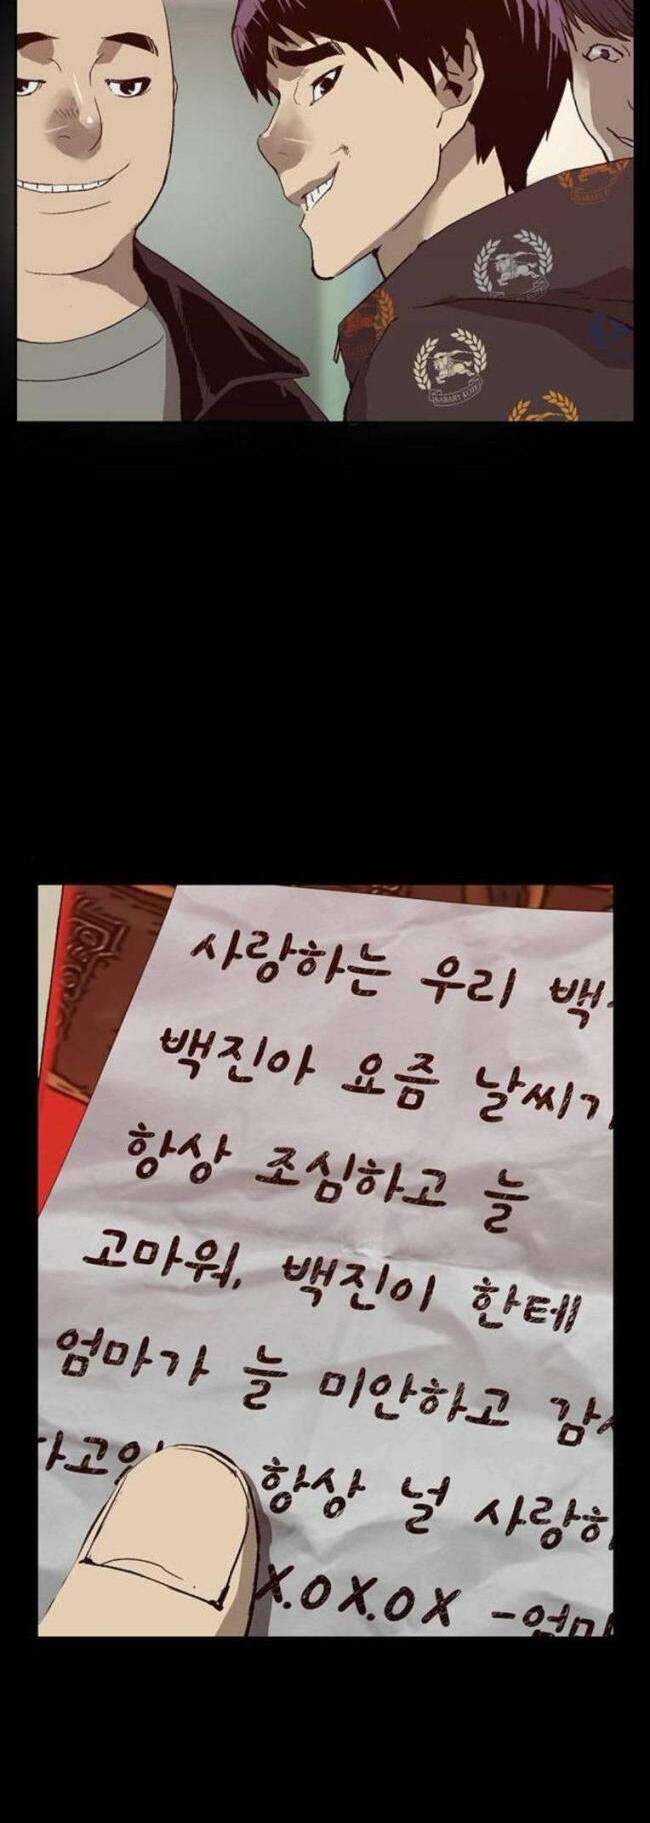 사랑하는 우리 백
백진아 요즘 날씨가
항상 조심하고 늘
고마워. 백진이 한테
엄마가 늘 미안하고 감
하고있 항상 널 사랑하
X.OX.OX -엄마